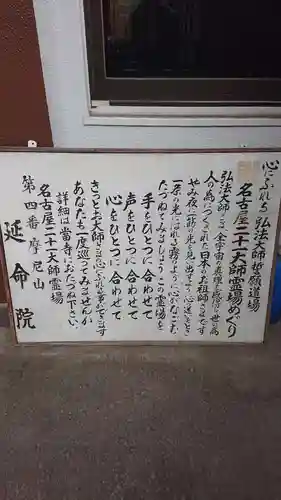 心にふれる 弘法大師 誓願道場
名古屋二十一大師霊場めぐり
弘法大師さまは、全宇宙の真理を感得し世の為
人の為につくされた日本のお祖師さまです
やみ夜に一筋の光を見出すよう心迷うとき
一条の光にふれる
たづねてみましょうこの霊場を
手をひとつに合わせて
声をひとつに合わせて
心をひとつに合わせて
きっとお大師さまに
あなたも一度巡ってみませんか
詳細は当寺におたづね下さい
名古屋二十一大師霊場
第四番 摩尼山
延命院